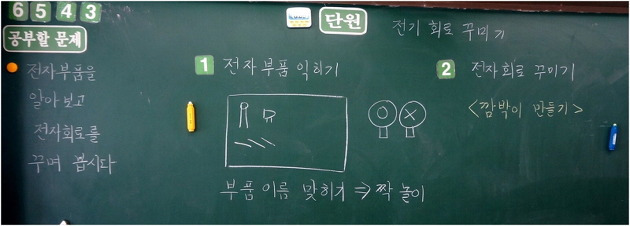 6 5 4 3
단원
전기 회로 꾸미기
공부할 문제
전자부품을
알아보고
전자회로를
꾸며 봅시다
1 전자부품 익히기
부품이름 맞히기 ⇒ 짝 놀이
2 전자회로 꾸미기
<깜박이 만들기>